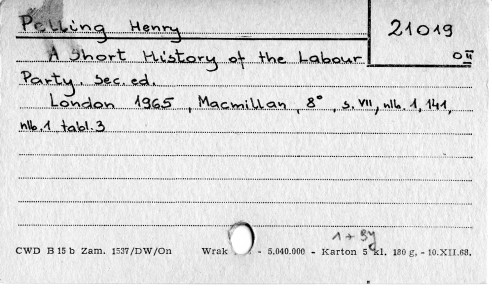 Pelling Henry
21019
A Short History of the Labour
Party. Sec. ed.
London 1965, Macmillan, 8°, s. VII, nlb. 1, 141,
nlb. 1 tabl. 3
CWD B 15 b Zam. 1537/DW/On Wrak - 5.040.000 - Karton 5 kl. 180 g. - 10.XII.68.